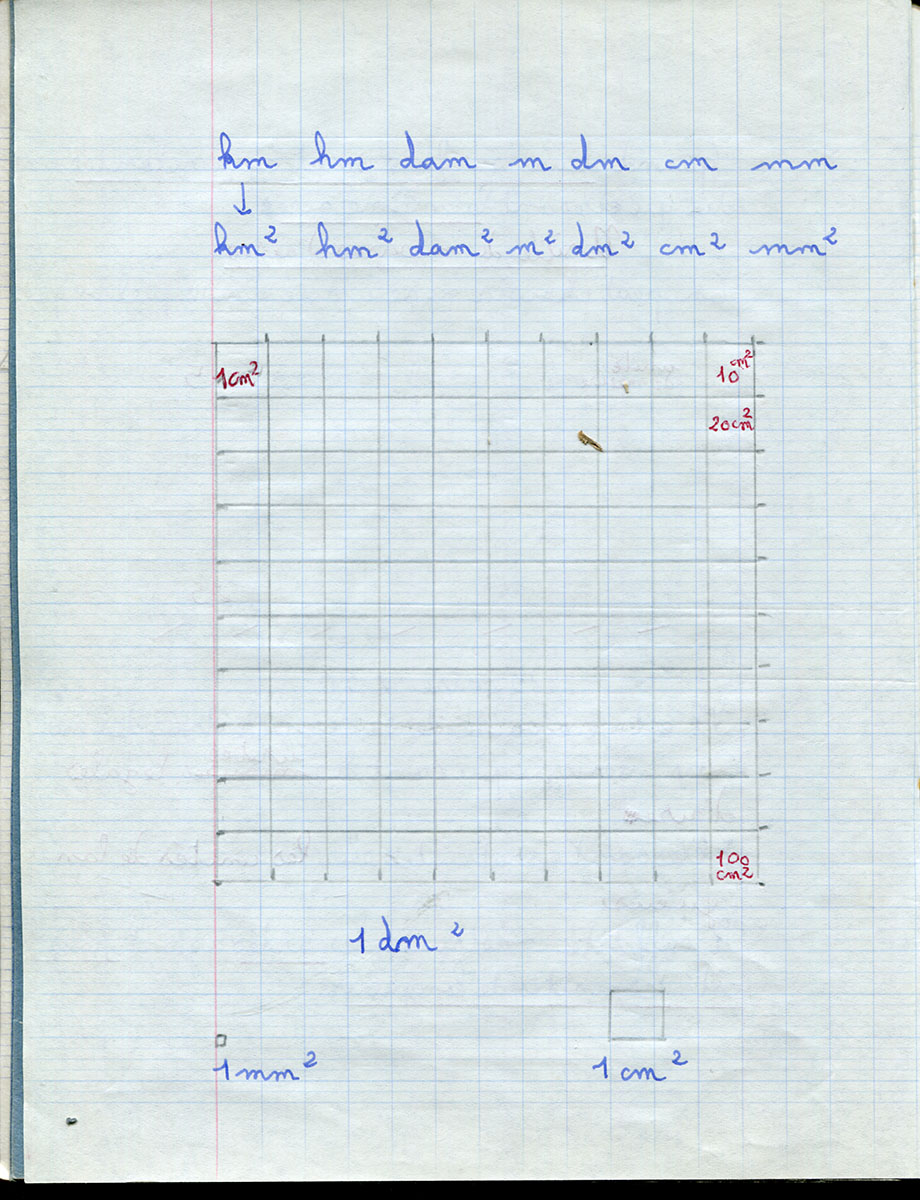 km hm dam m dm cm mm
↓
km² hm² dam² m² dm² cm² mm²
1cm² 10cm²
20cm²
100
cm²
1dm²
1mm² 1cm²